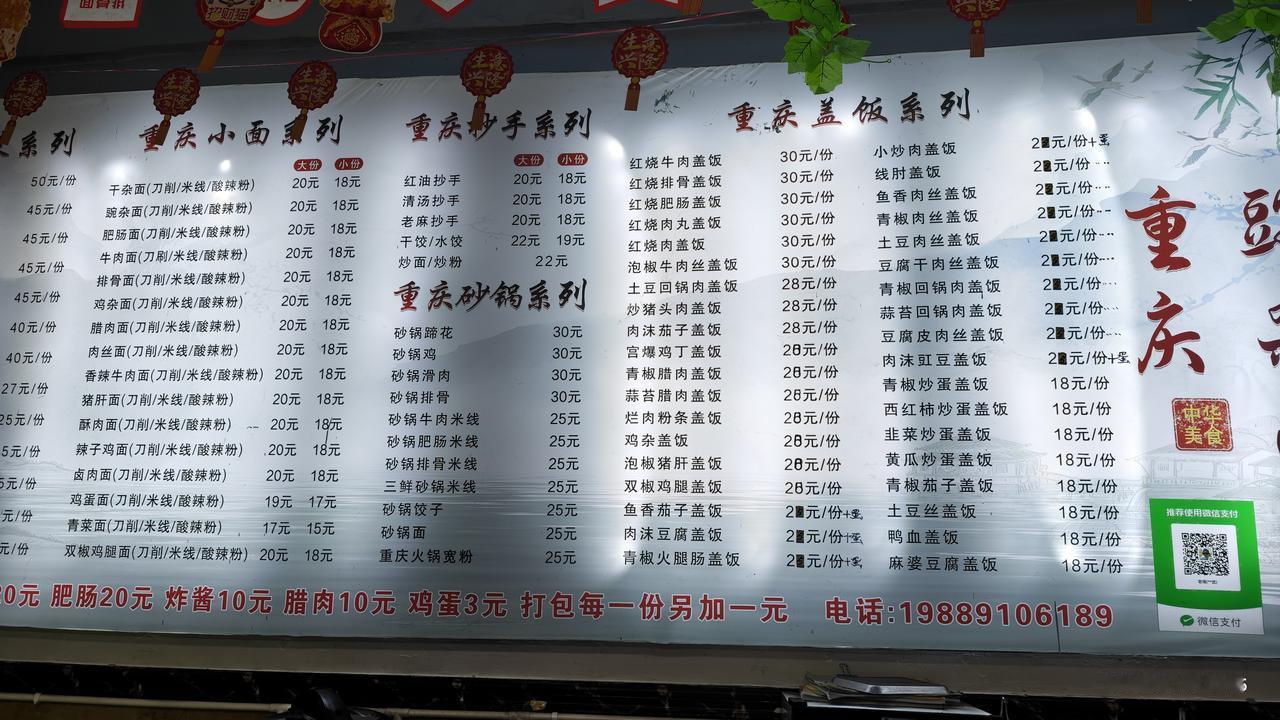 系列
50元/份
45元/份
45元/份
45元/份
45元/份
40元/份
40元/份
27元/份
25元/份
重庆小面系列
大份 小份
干杂面(刀削/米线/酸辣粉) 20元 18元
豌杂面(刀削/米线/酸辣粉) 20元 18元
肥肠面(刀削/米线/酸辣粉) 20元 18元
牛肉面(刀削/米线/酸辣粉) 20元 18元
排骨面(刀削/米线/酸辣粉) 20元 18元
鸡杂面(刀削/米线/酸辣粉) 20元 18元
腊肉面(刀削/米线/酸辣粉) 20元 18元
肉丝面(刀削/米线/酸辣粉) 20元 18元
香辣牛肉面(刀削/米线/酸辣粉) 20元 18元
猪肝面(刀削/米线/酸辣粉) 20元 18元
酥肉面(刀削/米线/酸辣粉) 20元 18元
辣子鸡面(刀削/米线/酸辣粉) 20元 18元
卤肉面(刀削/米线/酸辣粉) 20元 18元
鸡蛋面(刀削/米线/酸辣粉) 19元 17元
青菜面(刀削/米线/酸辣粉) 17元 15元
双椒鸡腿面(刀削/米线/酸辣粉) 20元 18元
重庆抄手系列
大份 小份
红油抄手 20元 18元
清汤抄手 20元 18元
老麻抄手 20元 18元
干饺/水饺 22元 19元
炒面/炒粉 22元
重庆砂锅系列
砂锅蹄花 30元
砂锅鸡 30元
砂锅滑肉 30元
砂锅排骨 30元
砂锅牛肉米线 25元
砂锅肥肠米线 25元
砂锅排骨米线 25元
三鲜砂锅米线 25元
砂锅饺子 25元
砂锅面 25元
重庆火锅宽粉 25元
重庆盖饭系列
红烧牛肉盖饭 30元/份
红烧排骨盖饭 30元/份
红烧肥肠盖饭 30元/份
红烧肉丸盖饭 30元/份
红烧肉盖饭 30元/份
泡椒牛肉丝盖饭 30元/份
土豆回锅肉盖饭 28元/份
炒猪头肉盖饭 28元/份
肉沫茄子盖饭 28元/份
宫爆鸡丁盖饭 28元/份
青椒腊肉盖饭 28元/份
蒜苔腊肉盖饭 28元/份
烂肉粉条盖饭 28元/份
鸡杂盖饭 28元/份
泡椒猪肝盖饭 28元/份
双椒鸡腿盖饭 28元/份
鱼香茄子盖饭 元/份
肉沫豆腐盖饭 元/份
青椒火腿肠盖饭 元/份
小炒肉盖饭 元/份
线肘盖饭 元/份
鱼香肉丝盖饭 元/份
青椒肉丝盖饭 元/份
土豆肉丝盖饭 元/份
豆腐干肉丝盖饭 元/份
青椒回锅肉盖饭 元/份
蒜苔回锅肉盖饭 元/份
豆腐皮肉丝盖饭 元/份
肉沫豇豆盖饭 元/份
青椒炒蛋盖饭 18元/份
西红柿炒蛋盖饭 18元/份
韭菜炒蛋盖饭 18元/份
黄瓜炒蛋盖饭 18元/份
青椒茄子盖饭 18元/份
土豆丝盖饭 18元/份
鸭血盖饭 18元/份
麻婆豆腐盖饭 18元/份
重庆
中华美食
推荐使用微信支付
微信支付
肥肠20元 炸酱10元 腊肉10元 鸡蛋3元 打包每一份另加一元 电话:19889106189
生意兴隆
生意兴隆
生意兴隆
生意兴隆
生意兴隆
招财猫